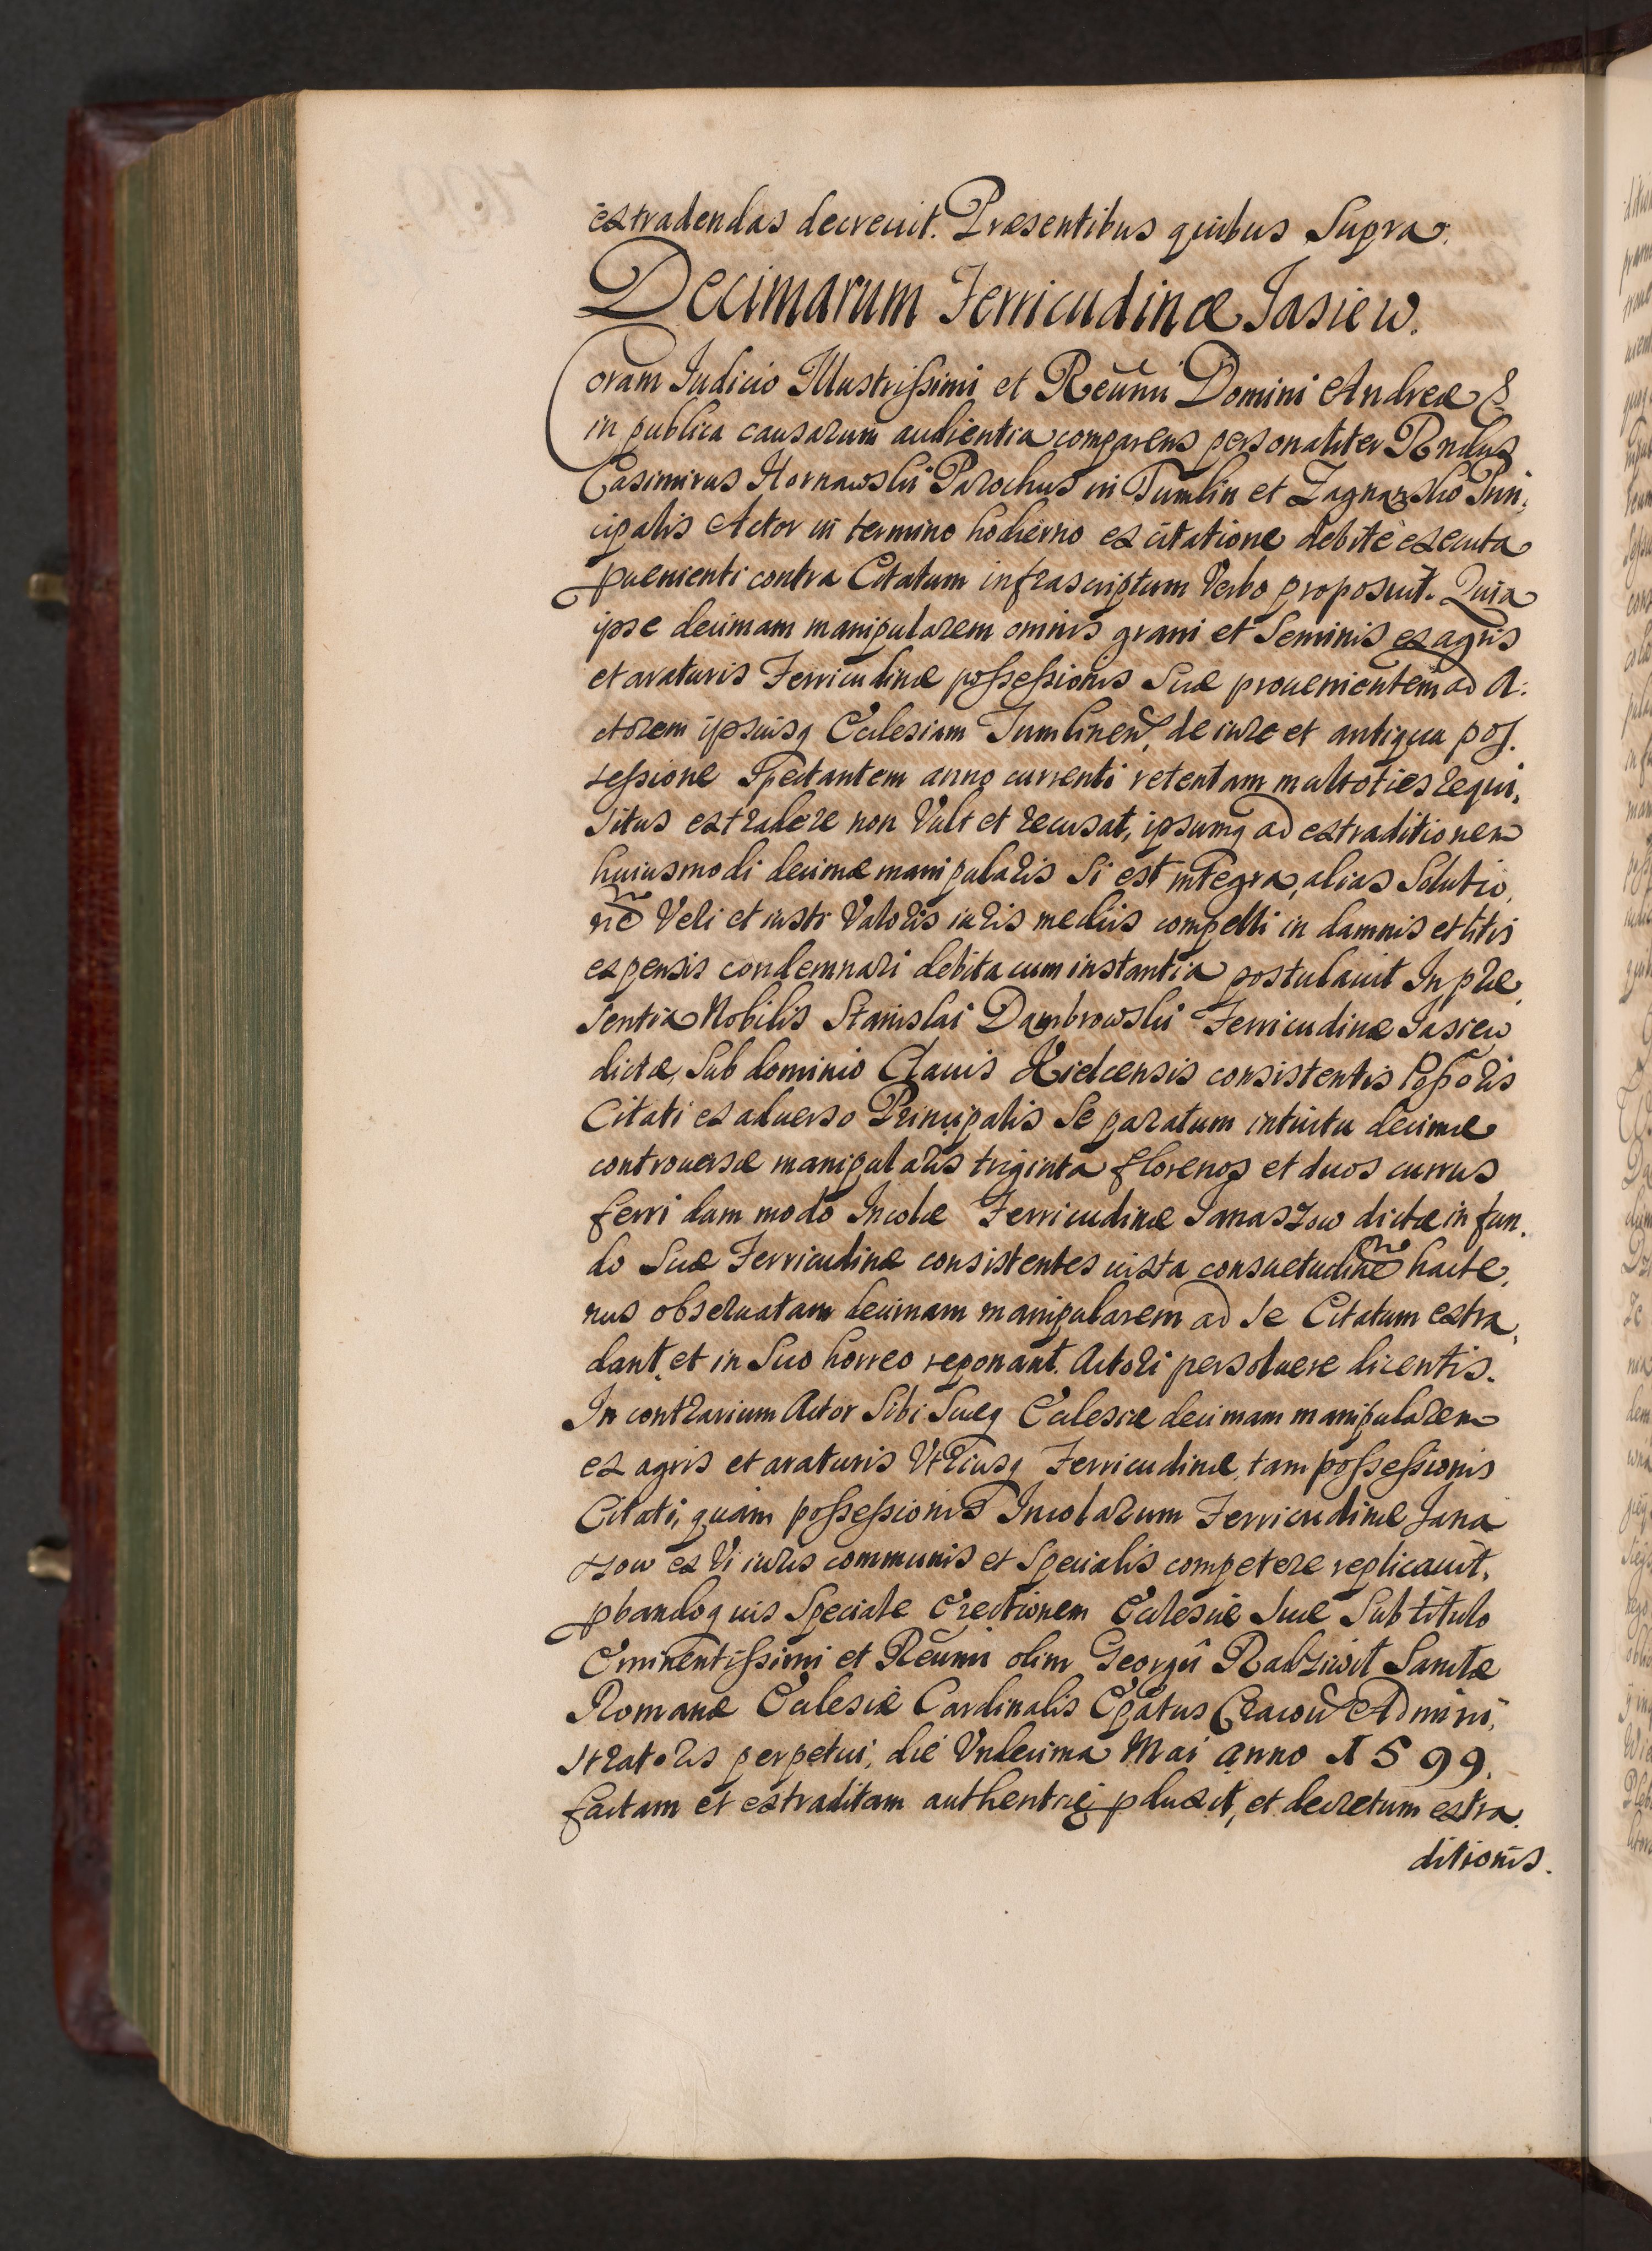 extradendas decreuit. Præsentibus quibus Supra.
Decimarum Ferricudinæ Jasiew.
Coram Judicio Illustrissimi et Reūmi Domini Andreæ &
in publica causarum audientia comparens personaliter Rndus
Casimirus Hornawski Parochus in Tumlin et Zagnansko Prin,
cipalis Actor in termino hodierno ex citatione debitè executa
puenienti contra Citatum infrascriptum Verbo proposuit. Quia
ipse decimam manipularem omnis grani et Seminis ex agris
et araturis Ferricudinæ possessionis Suæ prouenientem ad A:
ctorem ipsiusq Ecclesiam Tumlinen, de iure et antiqua pos.
sessione Spectantem anno currenti retentam multoties requi,
situs extradere non Vult et recusat, ipsumq ad extraditionem
huiusmodi decimæ manipularis Si est integra, alias Solutio,
nē Veri et iusti Valoris iuris mediis compelli in damnis et litis
expensis condemnari debita cum instantia postulauit In præ,
sentia Nobilis Stanislai Dambrowski Ferricudinæ Jasiew
dictæ, Sub dominio Clauis Kielcensis consistentis Possoris
Citati ex aduerso Principalis Se paratum intuitu decimæ
controuersæ manipularis triginta florenos et duos currus
ferri dum modo Incolæ Ferricudinæ Janaszow dictæ in fun,
do Suæ Ferricudinæ consistentes iuxta consuetudinē hacte,
nus obseruatam decimam manipularem ad Se Citatum extra,
dant, et in Suo horreo reponant. Actori persoluere dicentis.
In contrarium Actor Sibi Suæq Ecclesiæ decimam manipularem
ex agris et araturis Vtriusq Ferricudinæ, tam possessionis
Citati, quàm possessionis Incolarum Ferricudinæ Jana
szow ex Vi iuris communis et Specialis competere replicauit,
pbandoq ius Speciale Erectionem Ecclesiæ Suæ Sub titulo
Eminentissimi et Reūmi olim Georgii Radziwił Sanctæ
Romanæ Ecclesiæ Cardinalis Epātus Cracou Admini,
stratoris perpetui, die Vndecima Mai anno 1599.
factam et extraditam authenticę pduxit, et decretum extra,
ditionis.